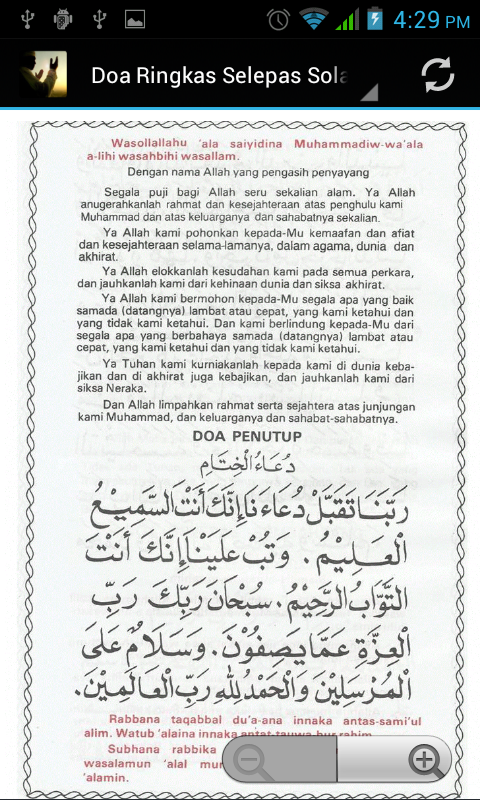 4:29 PM
Doa Ringkas Selepas Sola
Wasollallahu 'ala saiyidina Muhammadiw-wa'ala
a-lihi wasahbihi wasallam.
Dengan nama Allah yang pengasih penyayang
Segala puji bagi Allah seru sekalian alam. Ya Allah
anugerahkanlah rahmat dan kesejahteraan atas penghulu kami
Muhammad dan atas keluarganya dan sahabatnya sekalian.
Ya Allah kami pohonkan kepada-Mu kemaafan dan afiat
dan kesejahteraan selama-lamanya, dalam agama, dunia dan
akhirat.
Ya Allah elokkanlah kesudahan kami pada semua perkara,
dan jauhkanlah kami dari kehinaan dunia dan siksa akhirat.
Ya Allah kami bermohon kepada-Mu segala apa yang baik
samada (datangnya) lambat atau cepat, yang kami ketahui dan
yang tidak kami ketahui. Dan kami berlindung kepada-Mu dari
segala apa yang berbahaya samada (datangnya) lambat atau
cepat, yang kami ketahui dan yang tidak kami ketahui.
Ya Tuhan kami kurniakanlah kepada kami di dunia keba-
jikan dan di akhirat juga kebajikan, dan jauhkanlah kami dari
siksa Neraka.
Dan Allah limpahkan rahmat serta sejahtera atas junjungan
kami Muhammad, dan keluarganya dan sahabat-sahabatnya.
DOA PENUTUP
دُعَاءُ الْخِتَامِ
رَبَّنَا تَقَبَّلْ دُعَاءَنَا إِنَّكَ أَنْتَ السَّمِيْعُ
الْعَلِيْمُ. وَتُبْ عَلَيْنَا إِنَّكَ أَنْتَ
التَّوَّابُ الرَّحِيْمُ. سُبْحَانَ رَبِّكَ رَبِّ
الْعِزَّةِ عَمَّا يَصِفُوْنَ. وَسَلَامٌ عَلَى
الْمُرْسَلِيْنَ وَالْحَمْدُ لِلّٰهِ رَبِّ الْعَالَمِيْنَ.
Rabbana taqabbal du'a-ana innaka antas-sami'ul
alim. Watub 'alaina innaka antat-tauwa-bur rahim.
Subhana rabbika
wasalamun 'alal
'alamin.